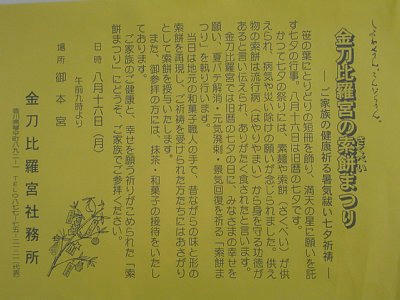 しあわせさん。こんぴらさん。
金刀比羅宮の索餅まつり
―ご家族の健康祈る暑気祓い七夕祈祷―
笹の葉にとりどりの短冊を飾り、満天の星に願いを託
す七夕の行事。八月十六日は旧暦の七夕です。
かつて七夕の祭りには、素麺や索餅（さくべい）が供
えられ、病気や災い除けの願いが念じられました。供え
物の索餅は流行病（はやりやまい）から身を守る功徳が
あると言い伝えられ、ありがたく食されたと言います。
金刀比羅宮では旧暦の七夕の日に、みなさまの幸せを
願い、夏バテ解消・元気発揚・景気回復を祈る「索餅ま
つり」を執り行います。
当日は地元の和菓子職人の手で、昔ながらの味と形の
索餅を再現し、ご祈祷を受けられた方々にはおさがり
として索餅を授与いたします。
また、御参拝の方には、抹茶・和菓子の接待をいたし
ます。
ご家族のご健康と、幸せを願う祈りがこめられた「索
餅まつり」にどうぞ、ご家族でご参拝ください。
日時 八月十六日（月）
午前九時より
場所 御本宮
金刀比羅宮社務所